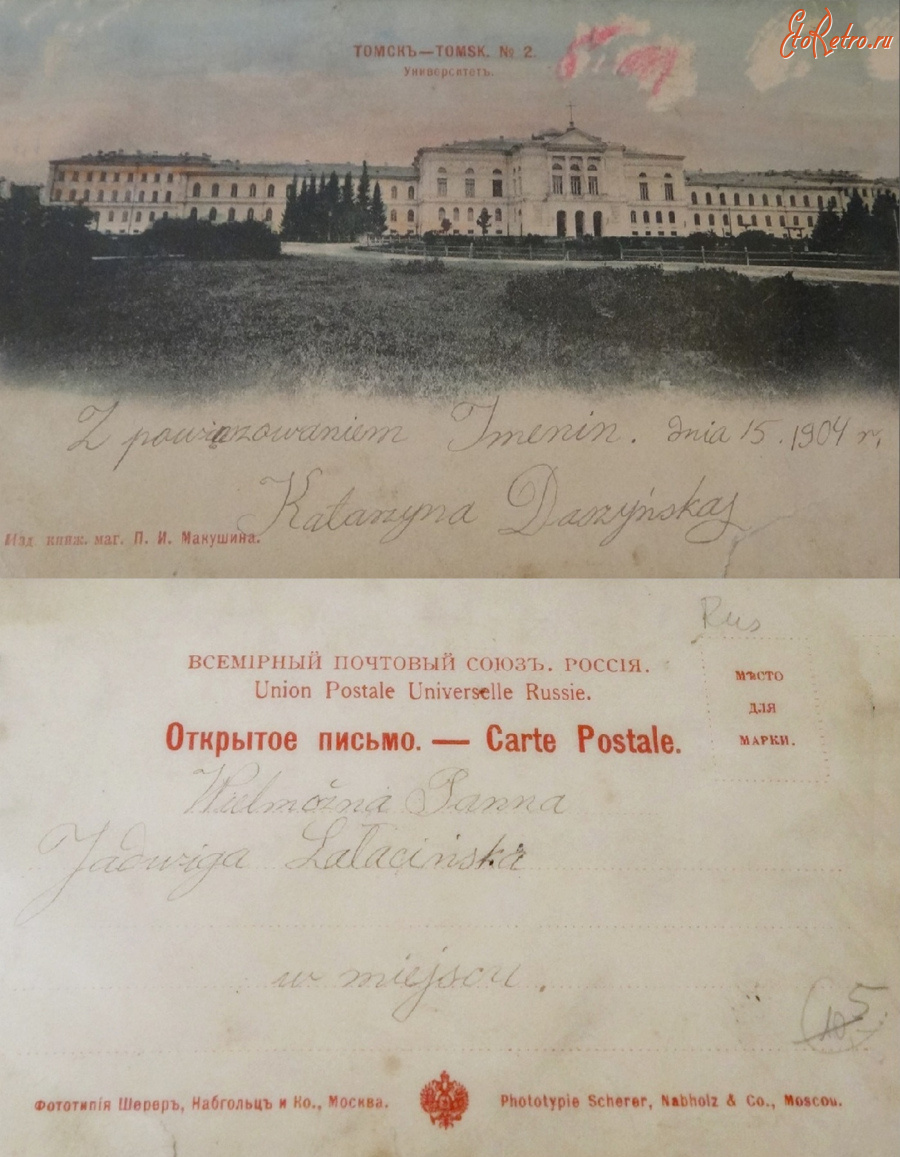 EtoRetro.ru
ТОМСКЪ—TOMSK. № 2.
Университетъ.
Z powiązowaniem Imenin. dnia 15. 1904 r.
Katarzyna Daszyńska
Изд. книж. маг. П. И. Макушина.
Rus
ВСЕМІРНЫЙ ПОЧТОВЫЙ СОЮЗЪ. РОССІЯ.
Union Postale Universelle Russie.
МѢСТО
ДЛЯ
МАРКИ.
Открытое письмо. — Carte Postale.
Wielmożna Panna
Jadwiga Łatacińska
w miejscu.
5
10
Фототипія Шереръ, Набгольцъ и Ко., Москва.
Phototypie Scherer, Nabholz & Co., Moscou.